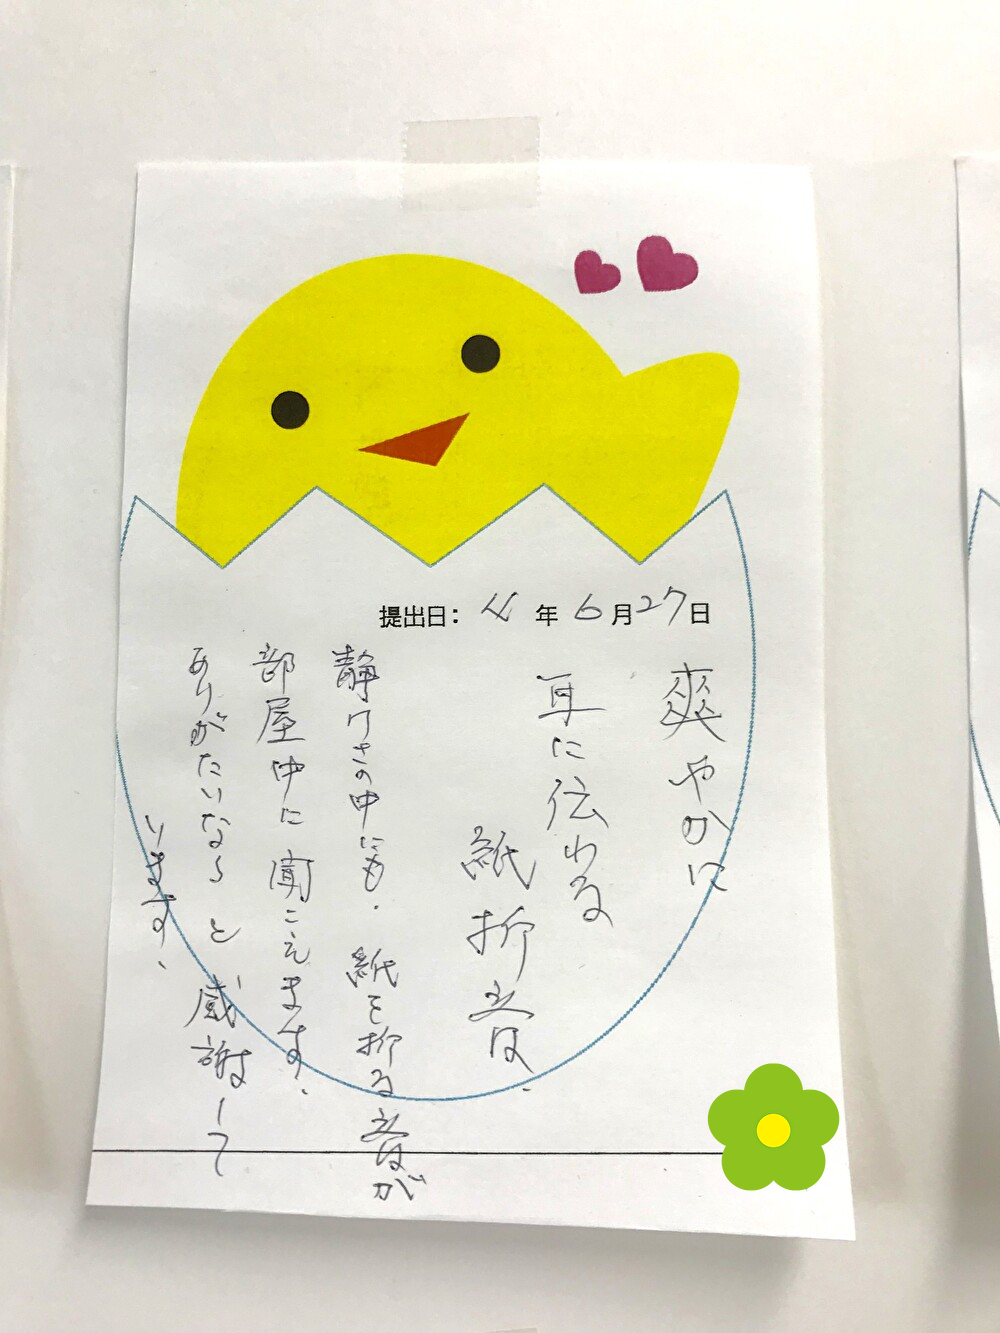 提出日: 4年6月27日
爽やかに
耳に伝わる
紙折音、
静けさの中にも、紙を折る音が
部屋中に聞こえます、
ありがたいなぁと感謝して
います、